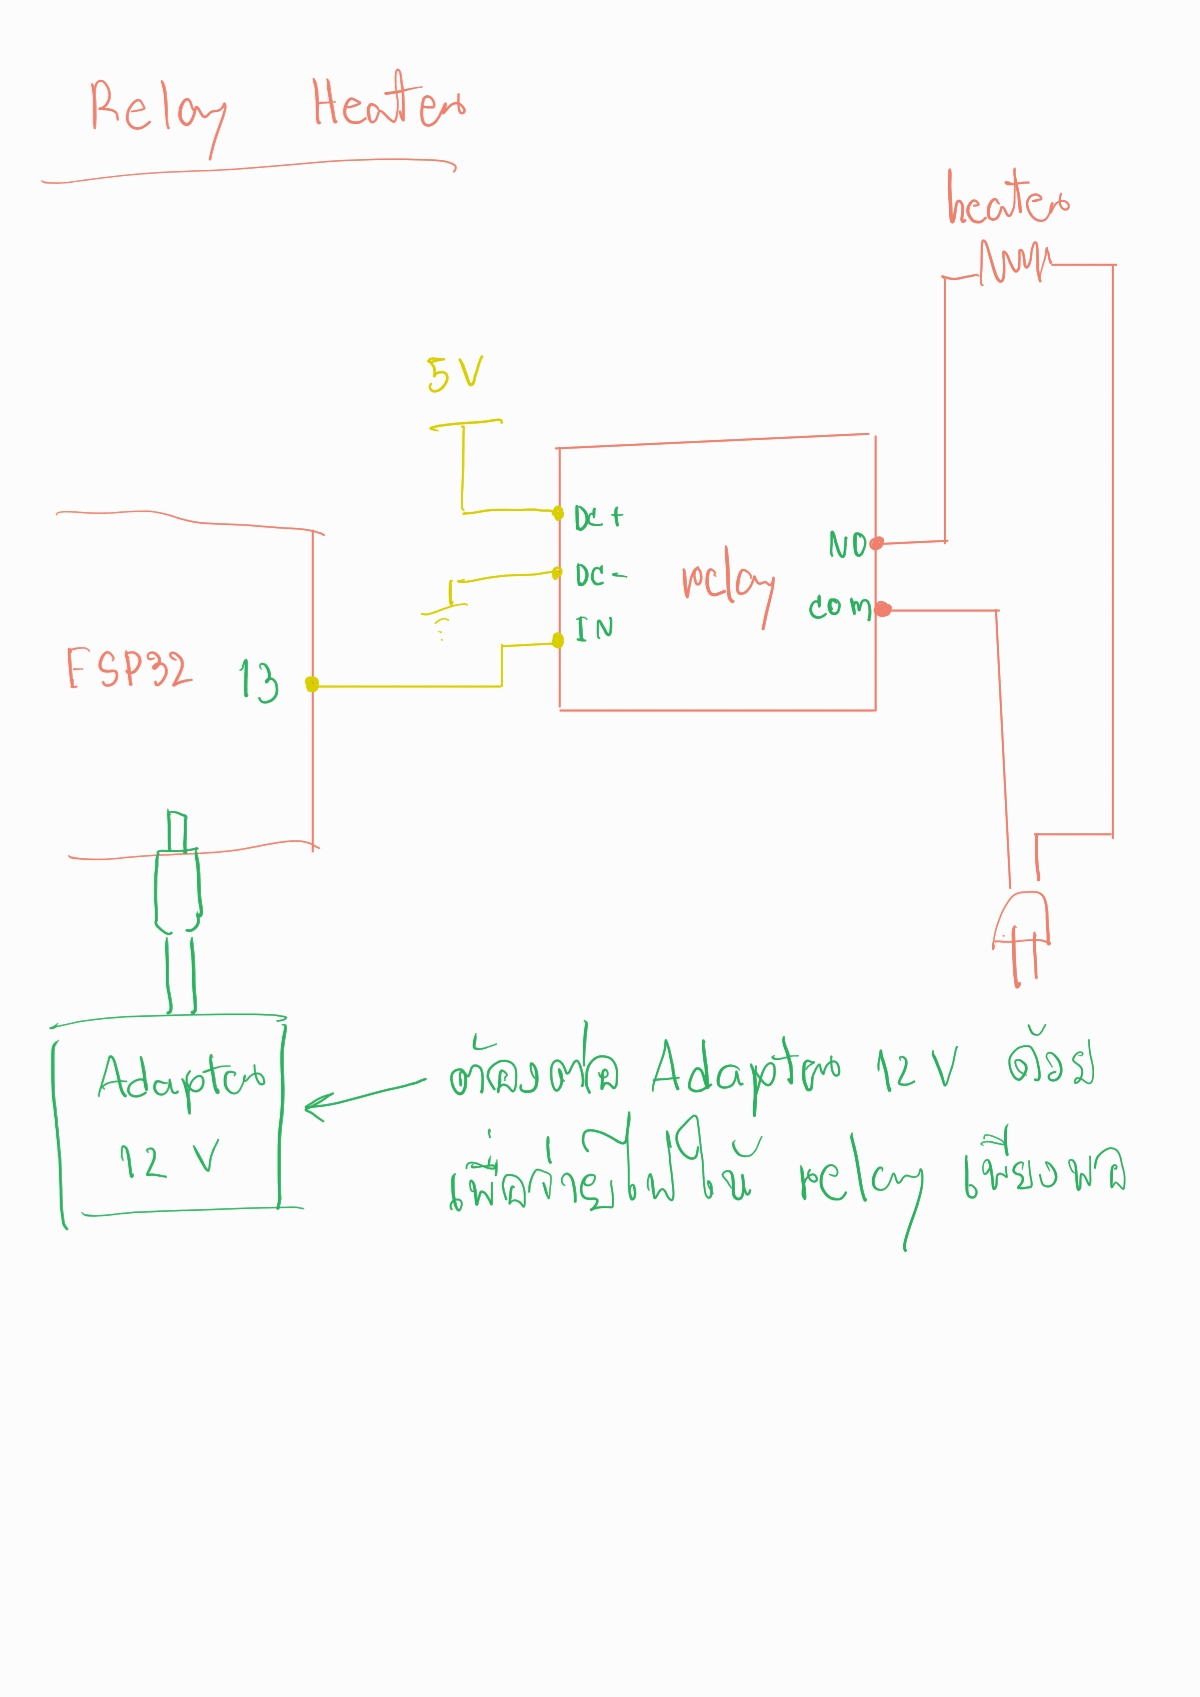 Relay Heater
heater
5V
DC+
DC-
IN
relay
NO
COM
ESP32 13
Adapter
12 V
ต้องต่อ Adapter 12 V ด้วย
เพื่อจ่ายไฟให้ relay เพียงพอ